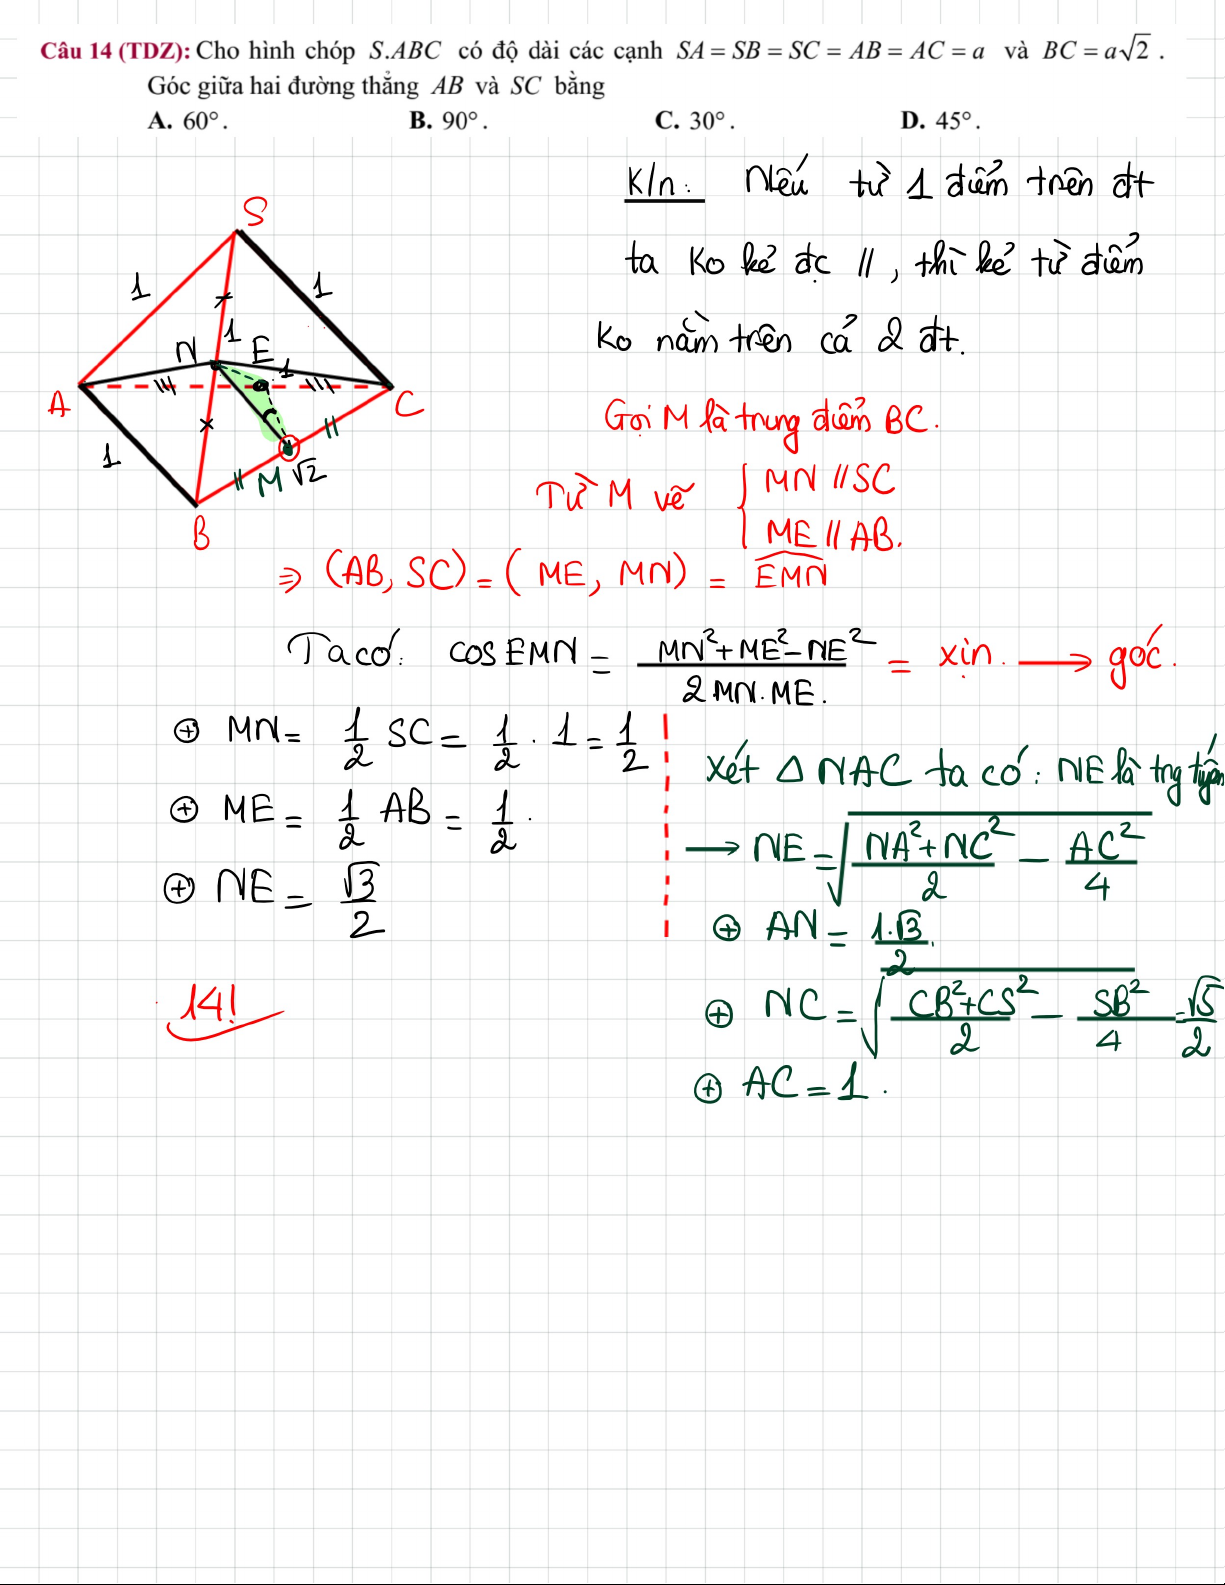 Câu 14 (TDZ): Cho hình chóp S.ABC có độ dài các cạnh SA = SB = SC = AB = AC = a và BC = a√2 .
Góc giữa hai đường thẳng AB và SC bằng
A. 60° . B. 90° . C. 30° . D. 45° .
K/n: Nếu từ 1 điểm trên đt
ta ko kẻ đc //, thì kẻ từ điểm
ko nằm trên cả 2 đt.
S
1
1
N
1
E
1
A
C
1
M
√2
B
Gọi M là trung điểm BC.
Từ M vẽ { MN // SC
ME // AB.
⇒ (AB, SC) = (ME, MN) = EMN
Ta có: cos EMN = (MN² + ME² - NE²) / (2 MN. ME.) = xịn. → góc.
⊕ MN = 1/2 SC = 1/2 . 1 = 1/2
⊕ ME = 1/2 AB = 1/2 .
⊕ NE = √3/2
14!
Xét Δ NAC ta có: NE là trg tuyến
→ NE = √((NA² + NC²)/2 - AC²/4)
⊕ AN = 1.√3/2.
⊕ NC = √((CB² + CS²)/2 - SB²/4) = √5/2
⊕ AC = 1 .